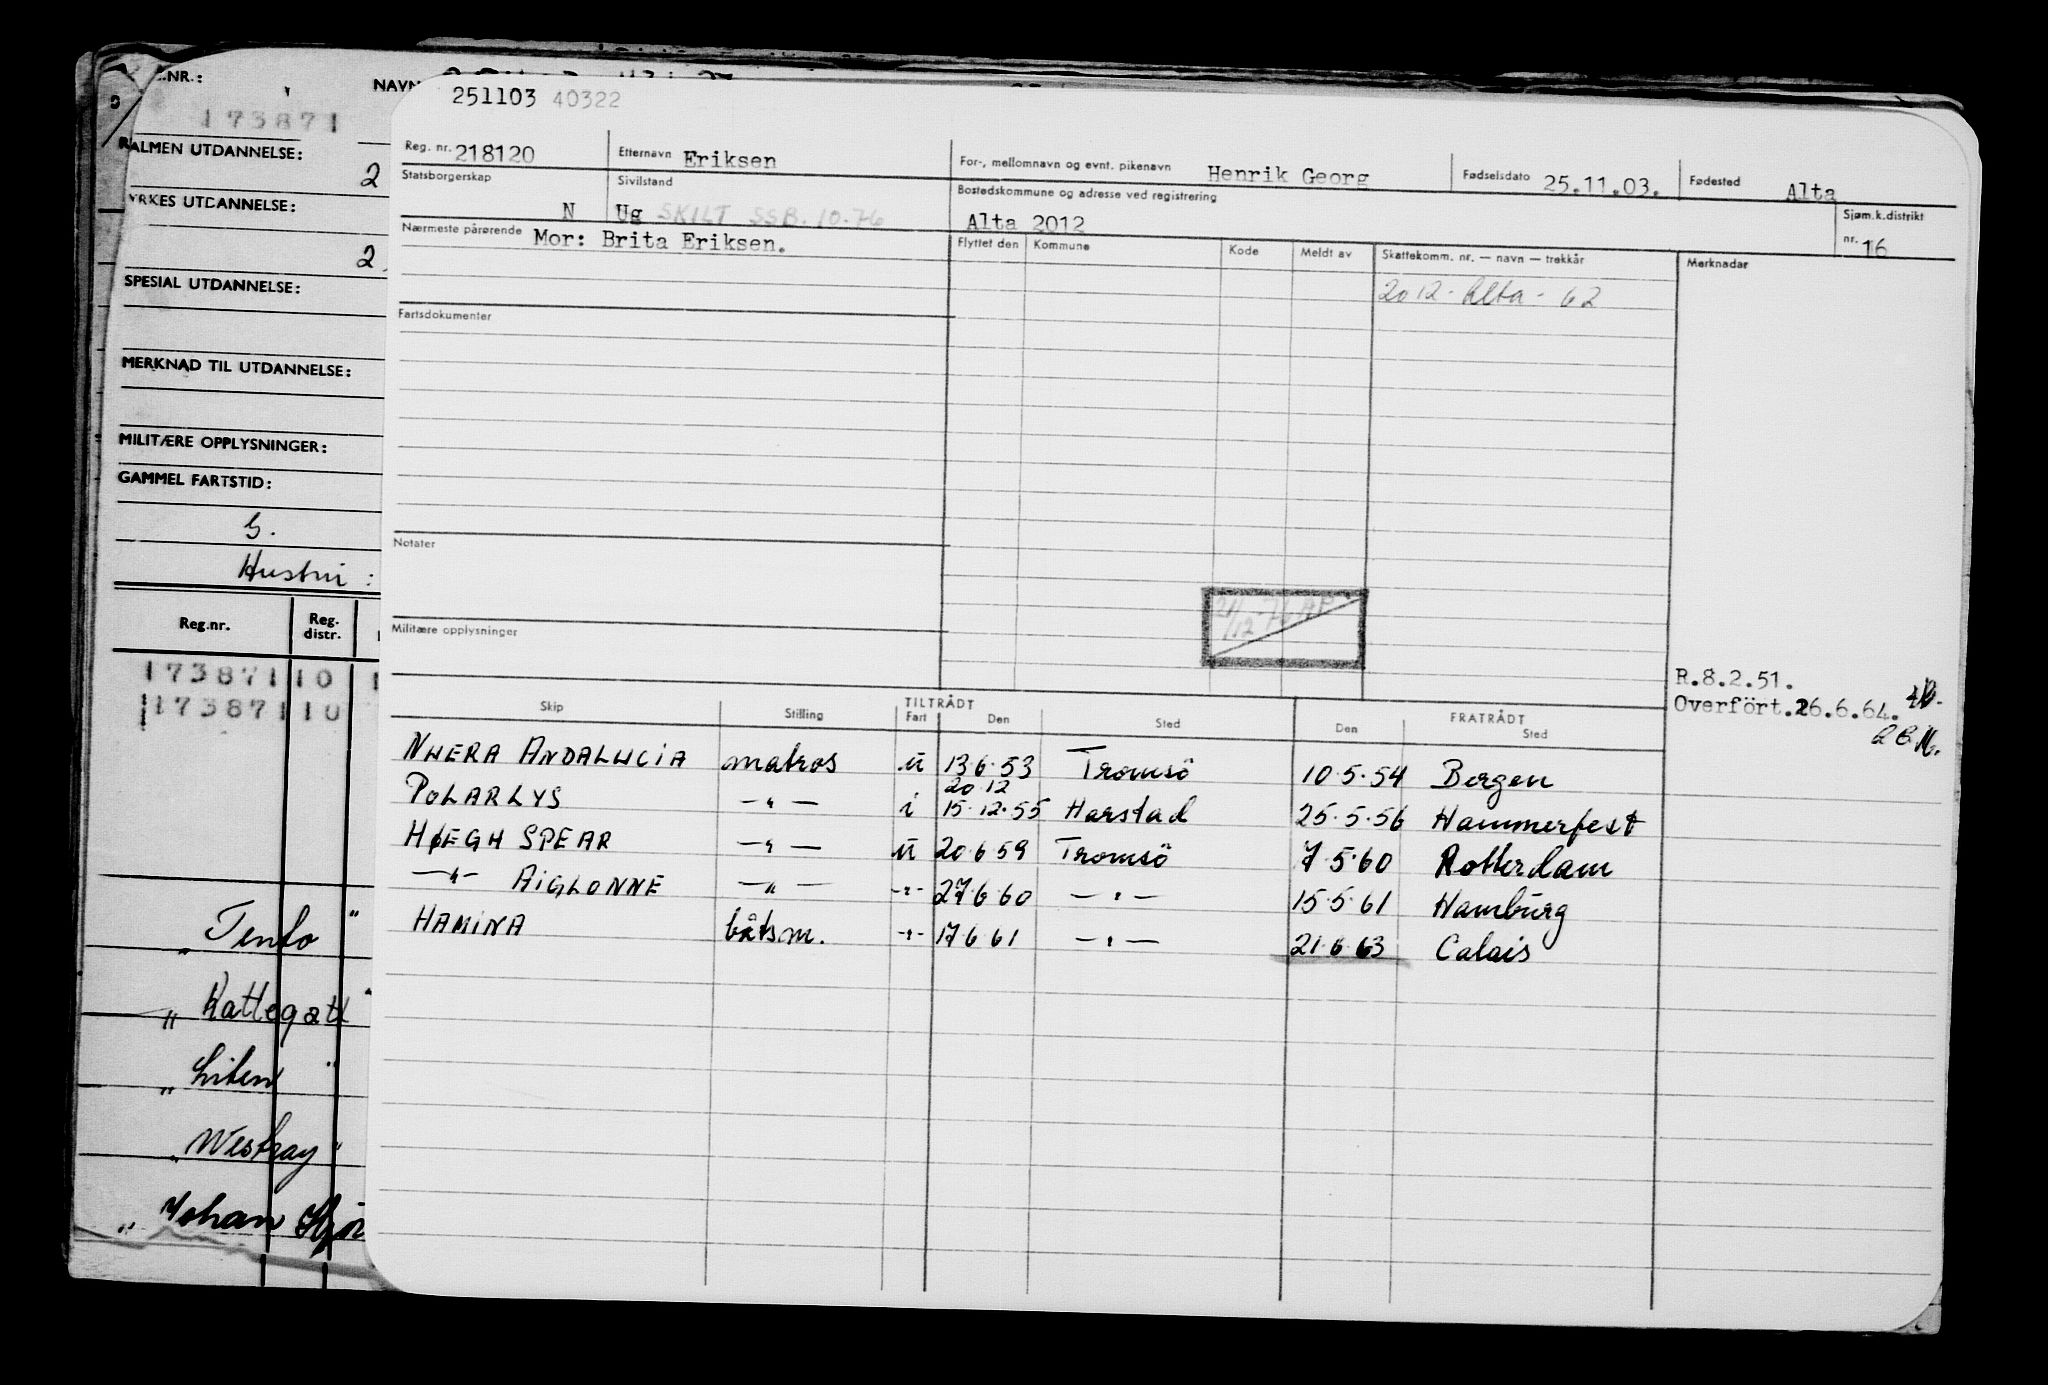 NR.:
NAVN
173871
ALMEN UTDANNELSE:
2
YRKES UTDANNELSE:
2
SPESIAL UTDANNELSE:
MERKNAD TIL UTDANNELSE:
MILITÆRE OPPLYSNINGER:
GAMMEL FARTSTID:
G.
Hustru :
Reg.nr. Reg. distr.
173871 10
173871 10
" Tento "
" Kattegatt "
" Liten "
" Westray "
" Johan Hjor
251103 40322
Reg. nr. 218120 Etternavn Eriksen For-, mellomnavn og evnt. pikenavn Henrik Georg Fødselsdato 25.11.03. Fødested Alta
Statsborgerskap N Sivilstand Ug SKILT SSB. 10-76 Bostedskommune og adresse ved registrering Alta 2012 Sjøm.k.distrikt nr. 16
Nærmeste pårørende Mor: Brita Eriksen. Flyttet den Kommune Kode Meldt av Skattekomm. nr. — navn — trekkår Merknader
2012 - Alta - 62
Fartsdokumenter
Notater
21/12-76 AP
Militære opplysninger
R.8.2.51.
Overfört.26.6.64.
Skip Stilling TILTRÅDT Fart Den Sted FRATRÅDT Den Sted
NUERA ANDALUCIA matros u 13.6.53 Tromsö 10.5.54 Bergen
20 12
POLARLYS —"— i 15.12.55 Harstad 25.5.56 Hammerfest
HØEGH SPEAR —"— u 20.6.59 Tromsö 7.5.60 Rotterdam
—"— AIGLONNE —"— -"- 27.6.60 —"— 15.5.61 Hamburg
HAMINA båtsm. -"- 17.6.61 —"— 21.6.63 Calais